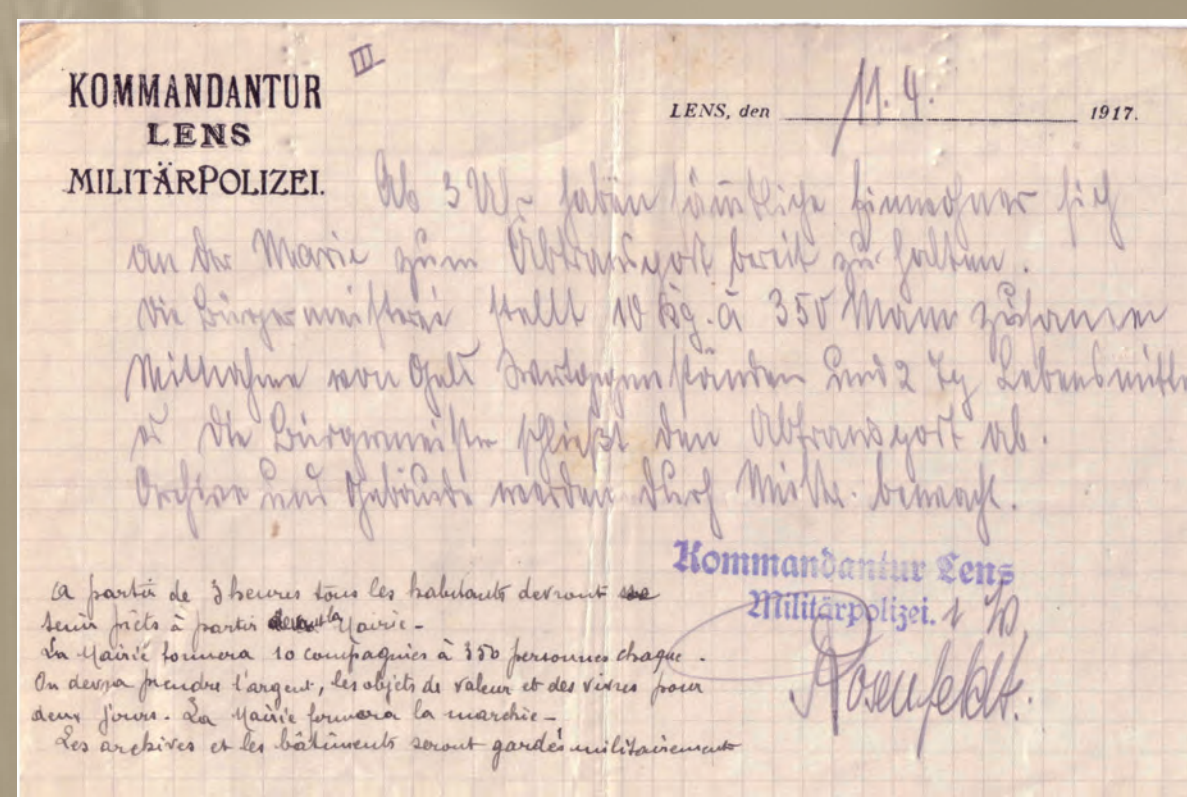 III
KOMMANDANTUR
LENS
MILITÄRPOLIZEI.
LENS, den 11. 4. 1917.
Ab 3 Uhr haben sämtliche Einwohner sich
an der Marie zum Abtransport bereit zu halten.
Die Bürgermeisterei stellt 10 Kg. à 350 Mann zusammen
Mitnahme von Geld Wertgegenständen und 2 Tg Lebensmittel
Die Bürgermeister schließt den Abtransport ab.
Archive und Gebäude werden durch Militr. bewacht.
Kommandantur Lens
Militärpolizei.
Rosenfeldt.
A partir de 3 heures tous les habitants devront se
tenir prêts à partir devant la Mairie -
La Mairie formera 10 compagnies à 350 personnes chaque.
On devra prendre l'argent, les objets de valeur et des vivres pour
deux jours. La Mairie fermera la marche -
Les archives et les bâtiments seront gardés militairement